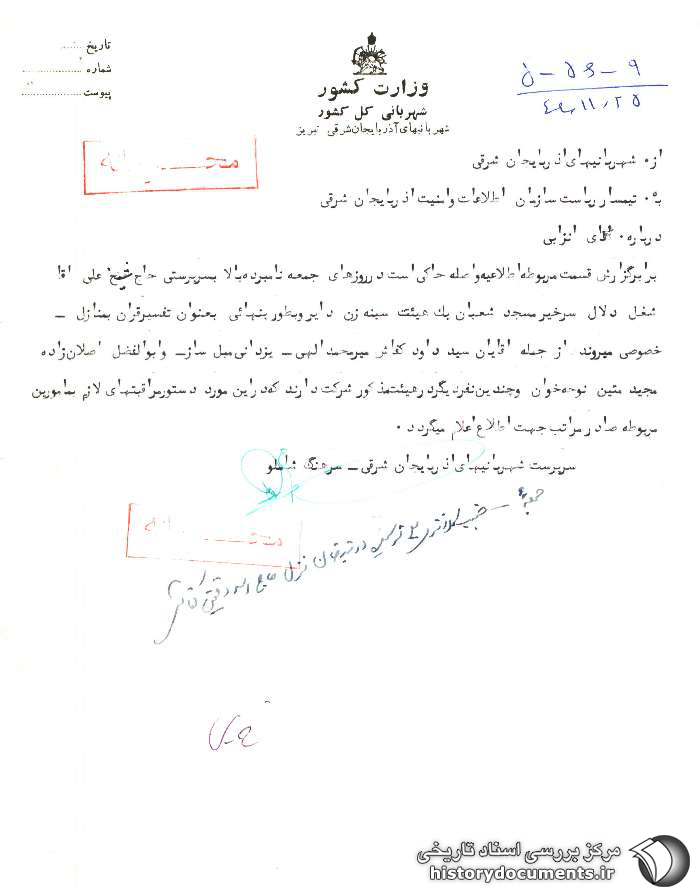 تاریخ
شماره
پیوست
وزارت کشور
شهربانی کل کشور
شهربانیهای آذربایجان شرقی تبریز
۵-۵۶-۹
۴۹٫۱۱٫۲۵
محـــرمانه
از۰ شهربانیهای اذربایجان شرقی
به۰ تیمسار ریاست سازمان اطلاعات وامنیت اذربایجان شرقی
درباره۰ اقای انزابی
برابرگزارش قسمت مربوطه اطلاعیه واصله حاکی است درروزهای جمعه نامبرده بالا بسرپرستی حاج شیخ علی اقا
شغل دلال سرخیر مسجد شعبان یک هیئت سینه زن دایر وبطور پنهائی بعنوان تفسیرقران بمنازل ـ
خصوصی میروند از جمله اقایان سید داود کفاش میرمحمدالهی ـ یزدانی مبل ساز ـ وابوالفضل اصلان زاده
مجید متین نوحه خوان وچندین نفردیگرد رهیئت مذکور شرکت دارند که دراین مورد دستورمراقبتهای لازم بمامورین
مربوطه صادر مراتب جهت اطلاع اعلام میگردد ۰
سرپرست شهربانیهای اذربایجان شرقی ـ سرهنگ شاملو
محـــرمانه
جمعه
منزل حاج
مرکز بررسی اسناد تاریخی
historydocuments.ir